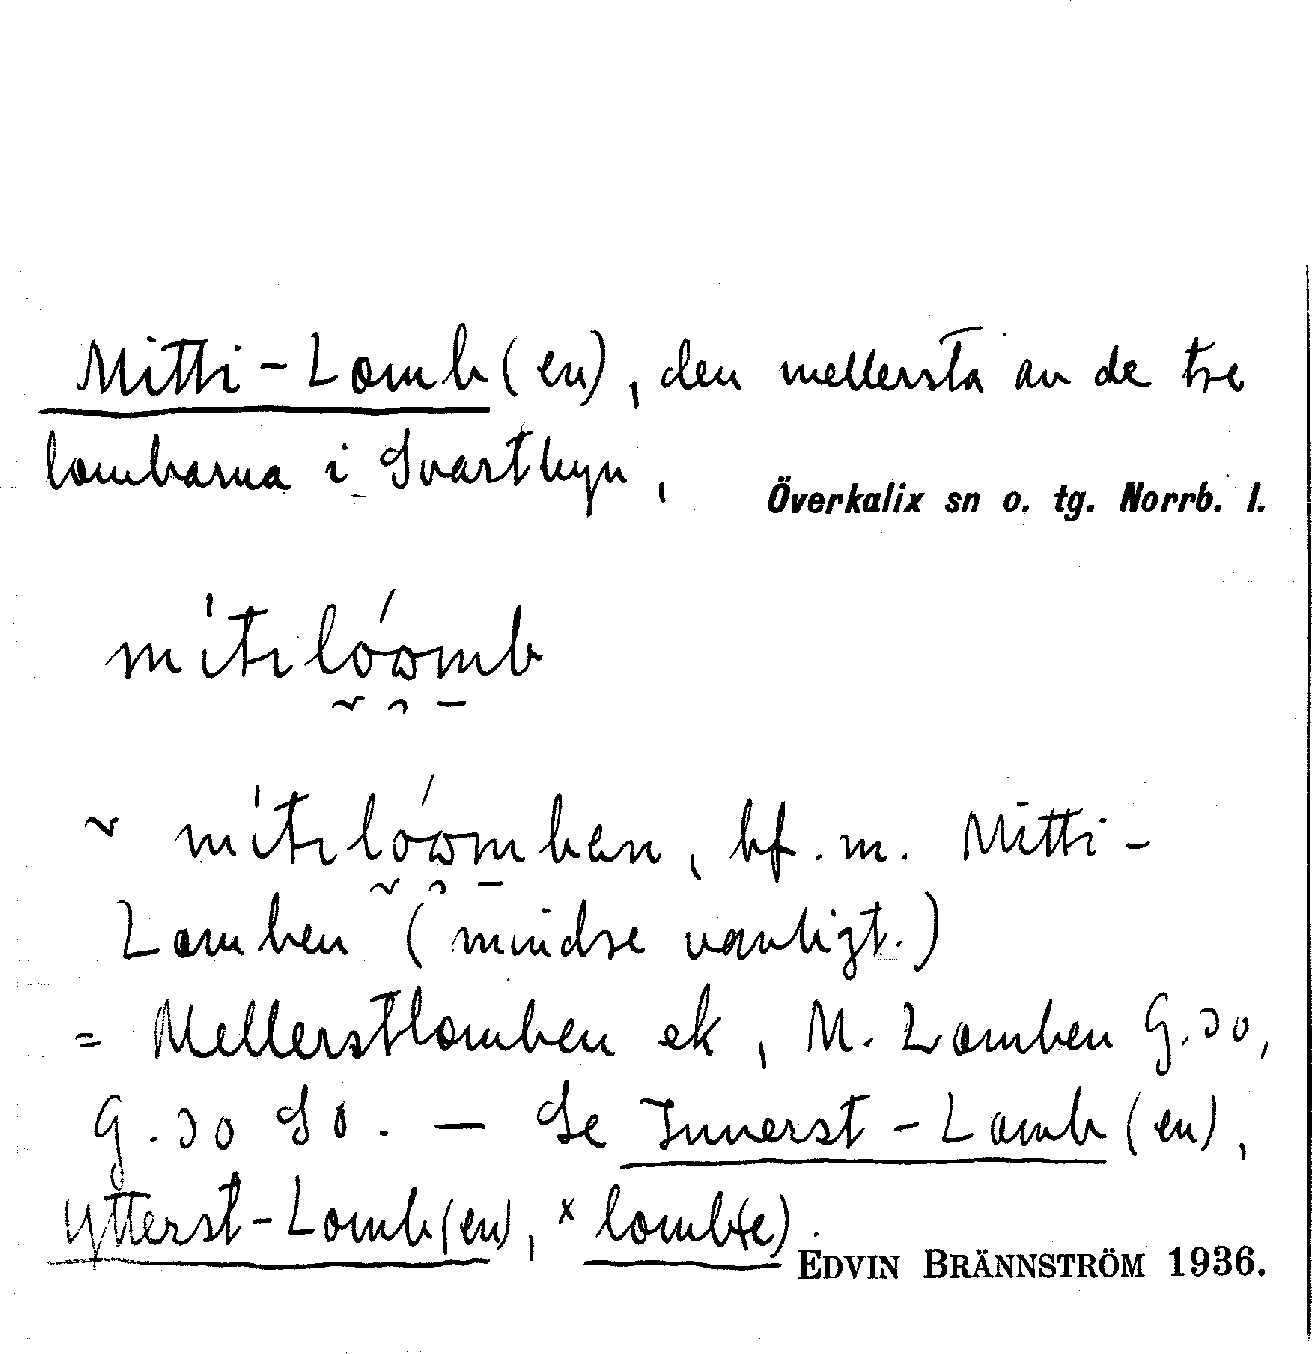 Mitti-Lomb(en), den mellersta av de tre
lombarna i Svartbyn,
Överkalix sn o. tg. Norrb. l.
mítɪlóωmb
~ mítɪlóωmban, bf. m. Mitti-
Lomben (mindre vanligt.)
= Mellerstlomben ek, M. Lomben G. 30,
G. 30 SO. — Se Innerst-Lomb(en),
Ytterst-Lomb(en), ˣlomb(e).
EDVIN BRÄNNSTRÖM 1936.